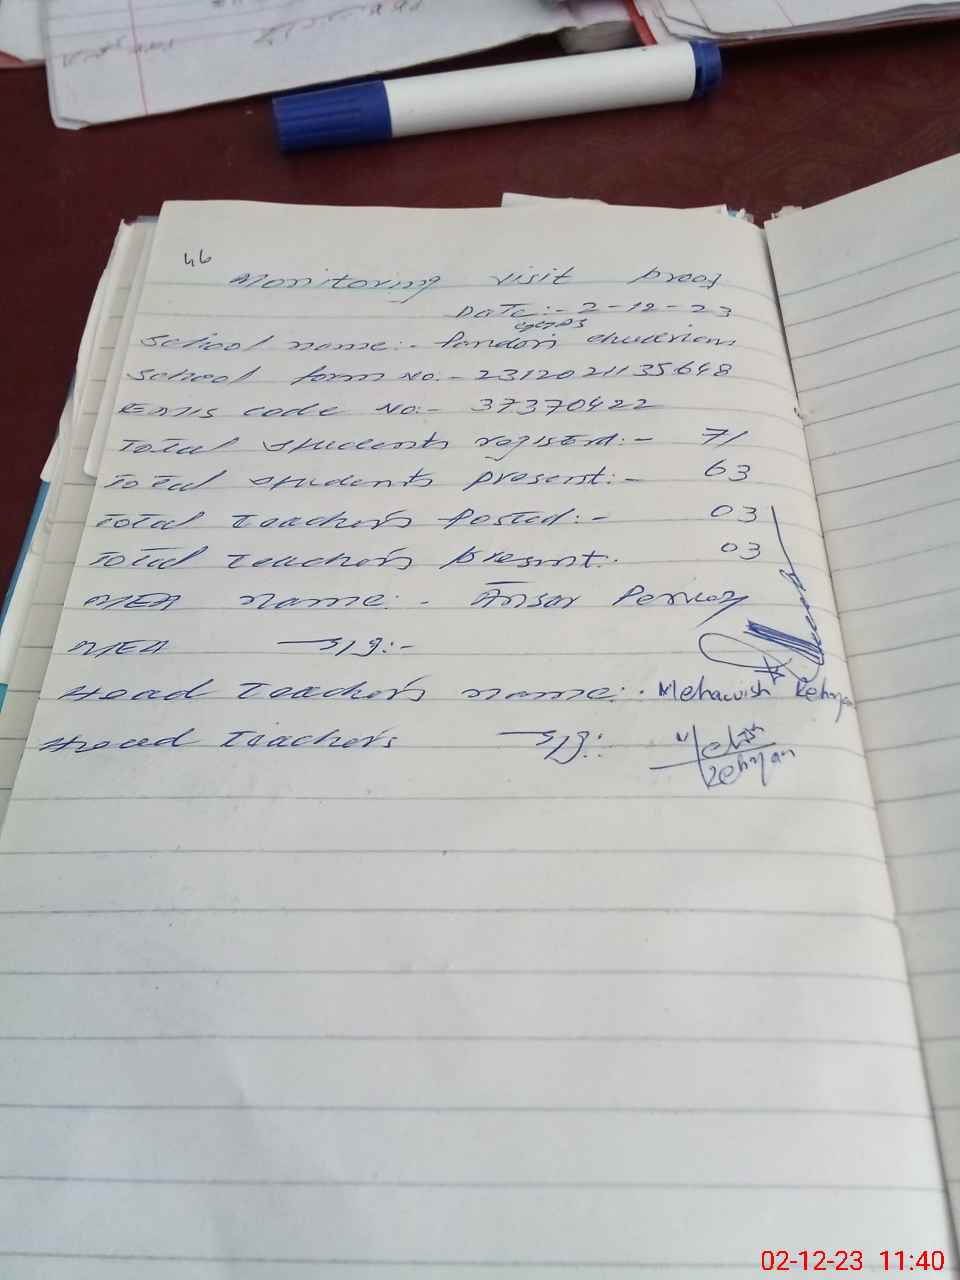 46
Monitoring visit proof
Date:- 2-12-23
School name:- Pandori
School form No:- 2312021135648
Emis code No:- 37370422
Total students registerd:- 71
Total students present:- 63
Total teachers posted:- 03
Total teachers present:- 03
MEA name:- Ansar Pervez
MEA sig:-
Head Teachers name:- Mehawish Rehman
Head Teachers sig:-
Rehman
02-12-23 11:40